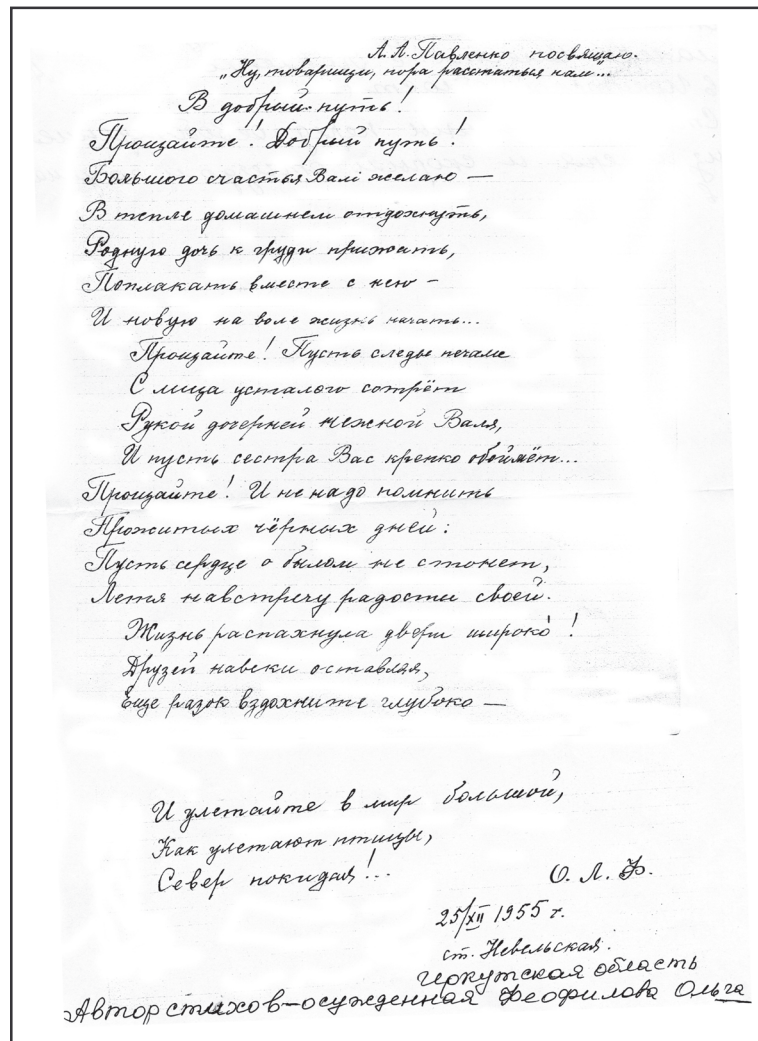 А.А. Павленко посвящаю.
„Ну, товарищи, пора расстаться нам"...
В добрый путь!
Прощайте! Добрый путь!
Большого счастья Вам желаю —
В тепле домашнем отдохнуть,
Родную дочь к груди прижать,
Поплакать вместе с нею –
И новую на воле жизнь начать...
Прощайте! Пусть следы печали
С лица усталого сотрёт
Рукой дочерней нежной Валя,
И пусть сестра Вас крепко обоймёт...
Прощайте! И не надо помнить
Прожитых чёрных дней:
Пусть сердце о былом не стонет,
Летя навстречу радости своей.
Жизнь распахнула двери широко!
Друзей навеки оставляя,
Еще разок вздохните глубоко —
И улетайте в мир большой,
Как улетают птицы,
Север покидая!..
О. Л. Ф.
25/XII 1955 г.
ст. Невельская.
Иркутская область
Автор стихов-осужденная Феофилова Ольга